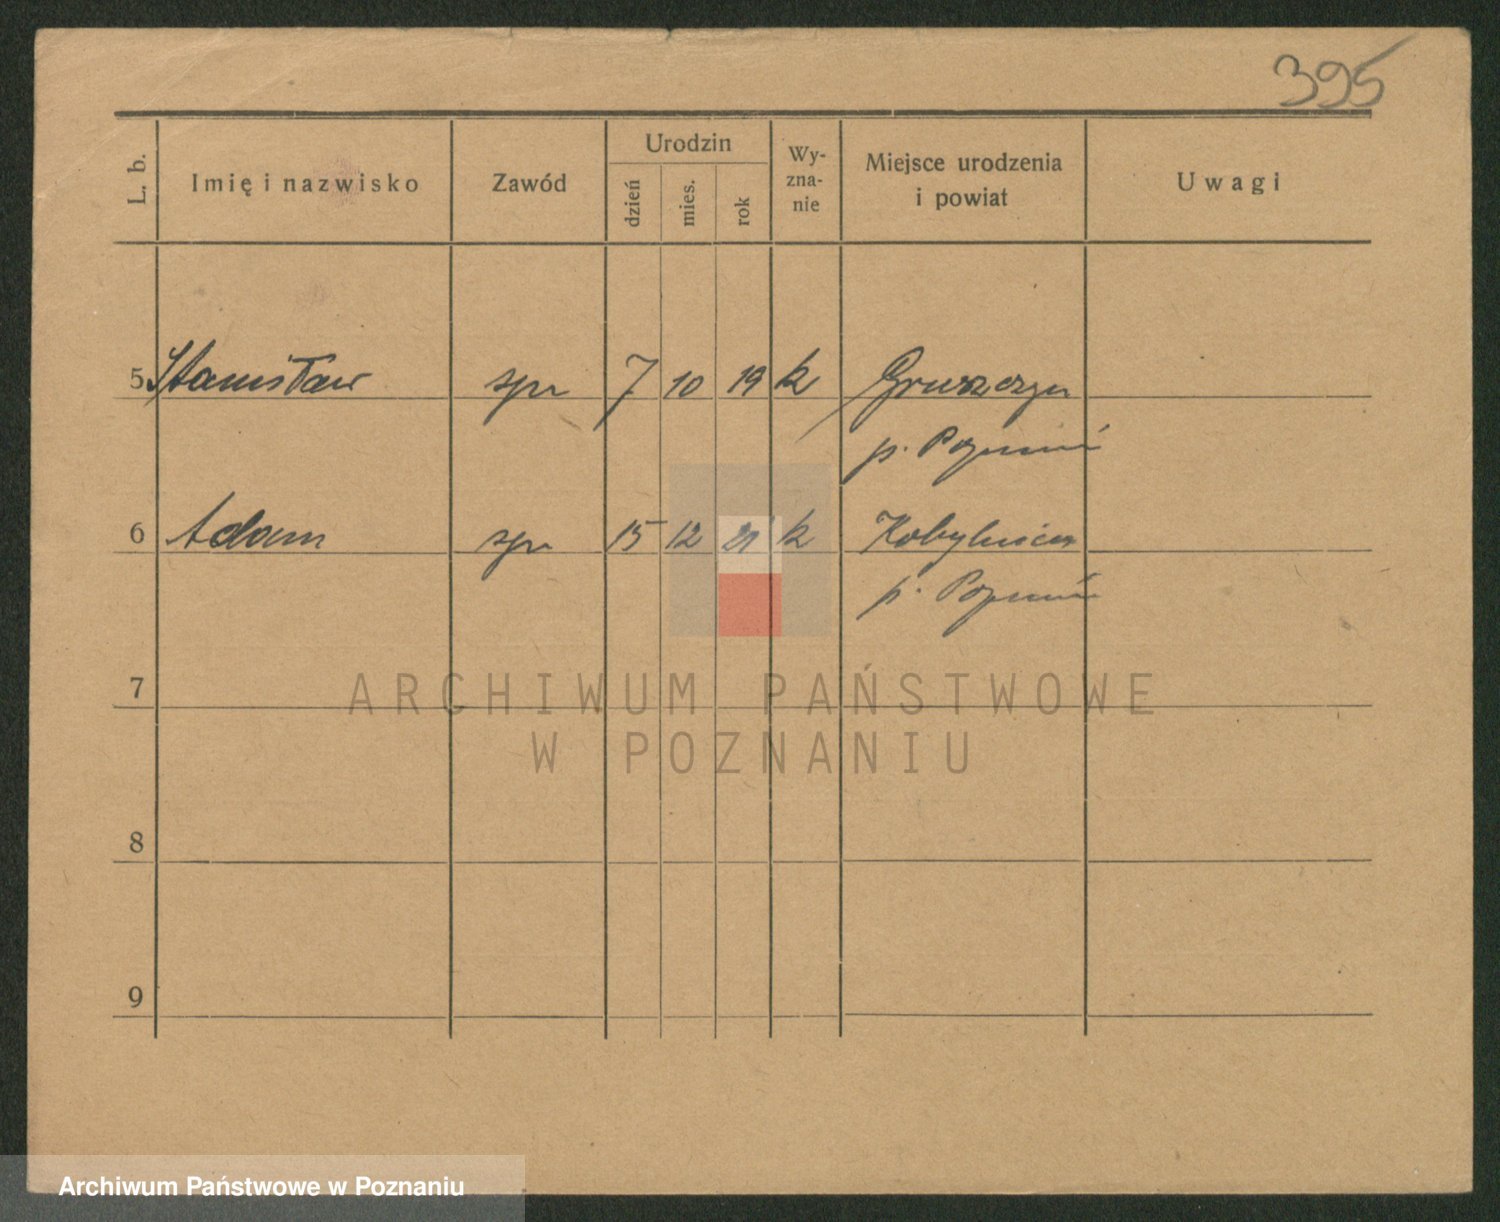 395
L. b.
Imię i nazwisko
Zawód
Urodzin
dzień
mies.
rok
Wy-
zna-
nie
Miejsce urodzenia
i powiat
Uwagi
5 Stanisław spr 7 10 19 k Gruszczyn
p. Poznań
6 Adam spr 15 12 21 k Kobylnica
p. Poznań
7
8
9
ARCHIWUM PAŃSTWOWE
W POZNANIU
Archiwum Państwowe w Poznaniu